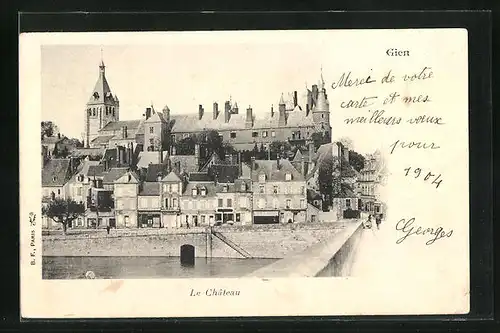 Gien
Merci de votre
carte et mes
meilleurs vœux
pour
1904
Georges
Le Château
B. F., PARIS